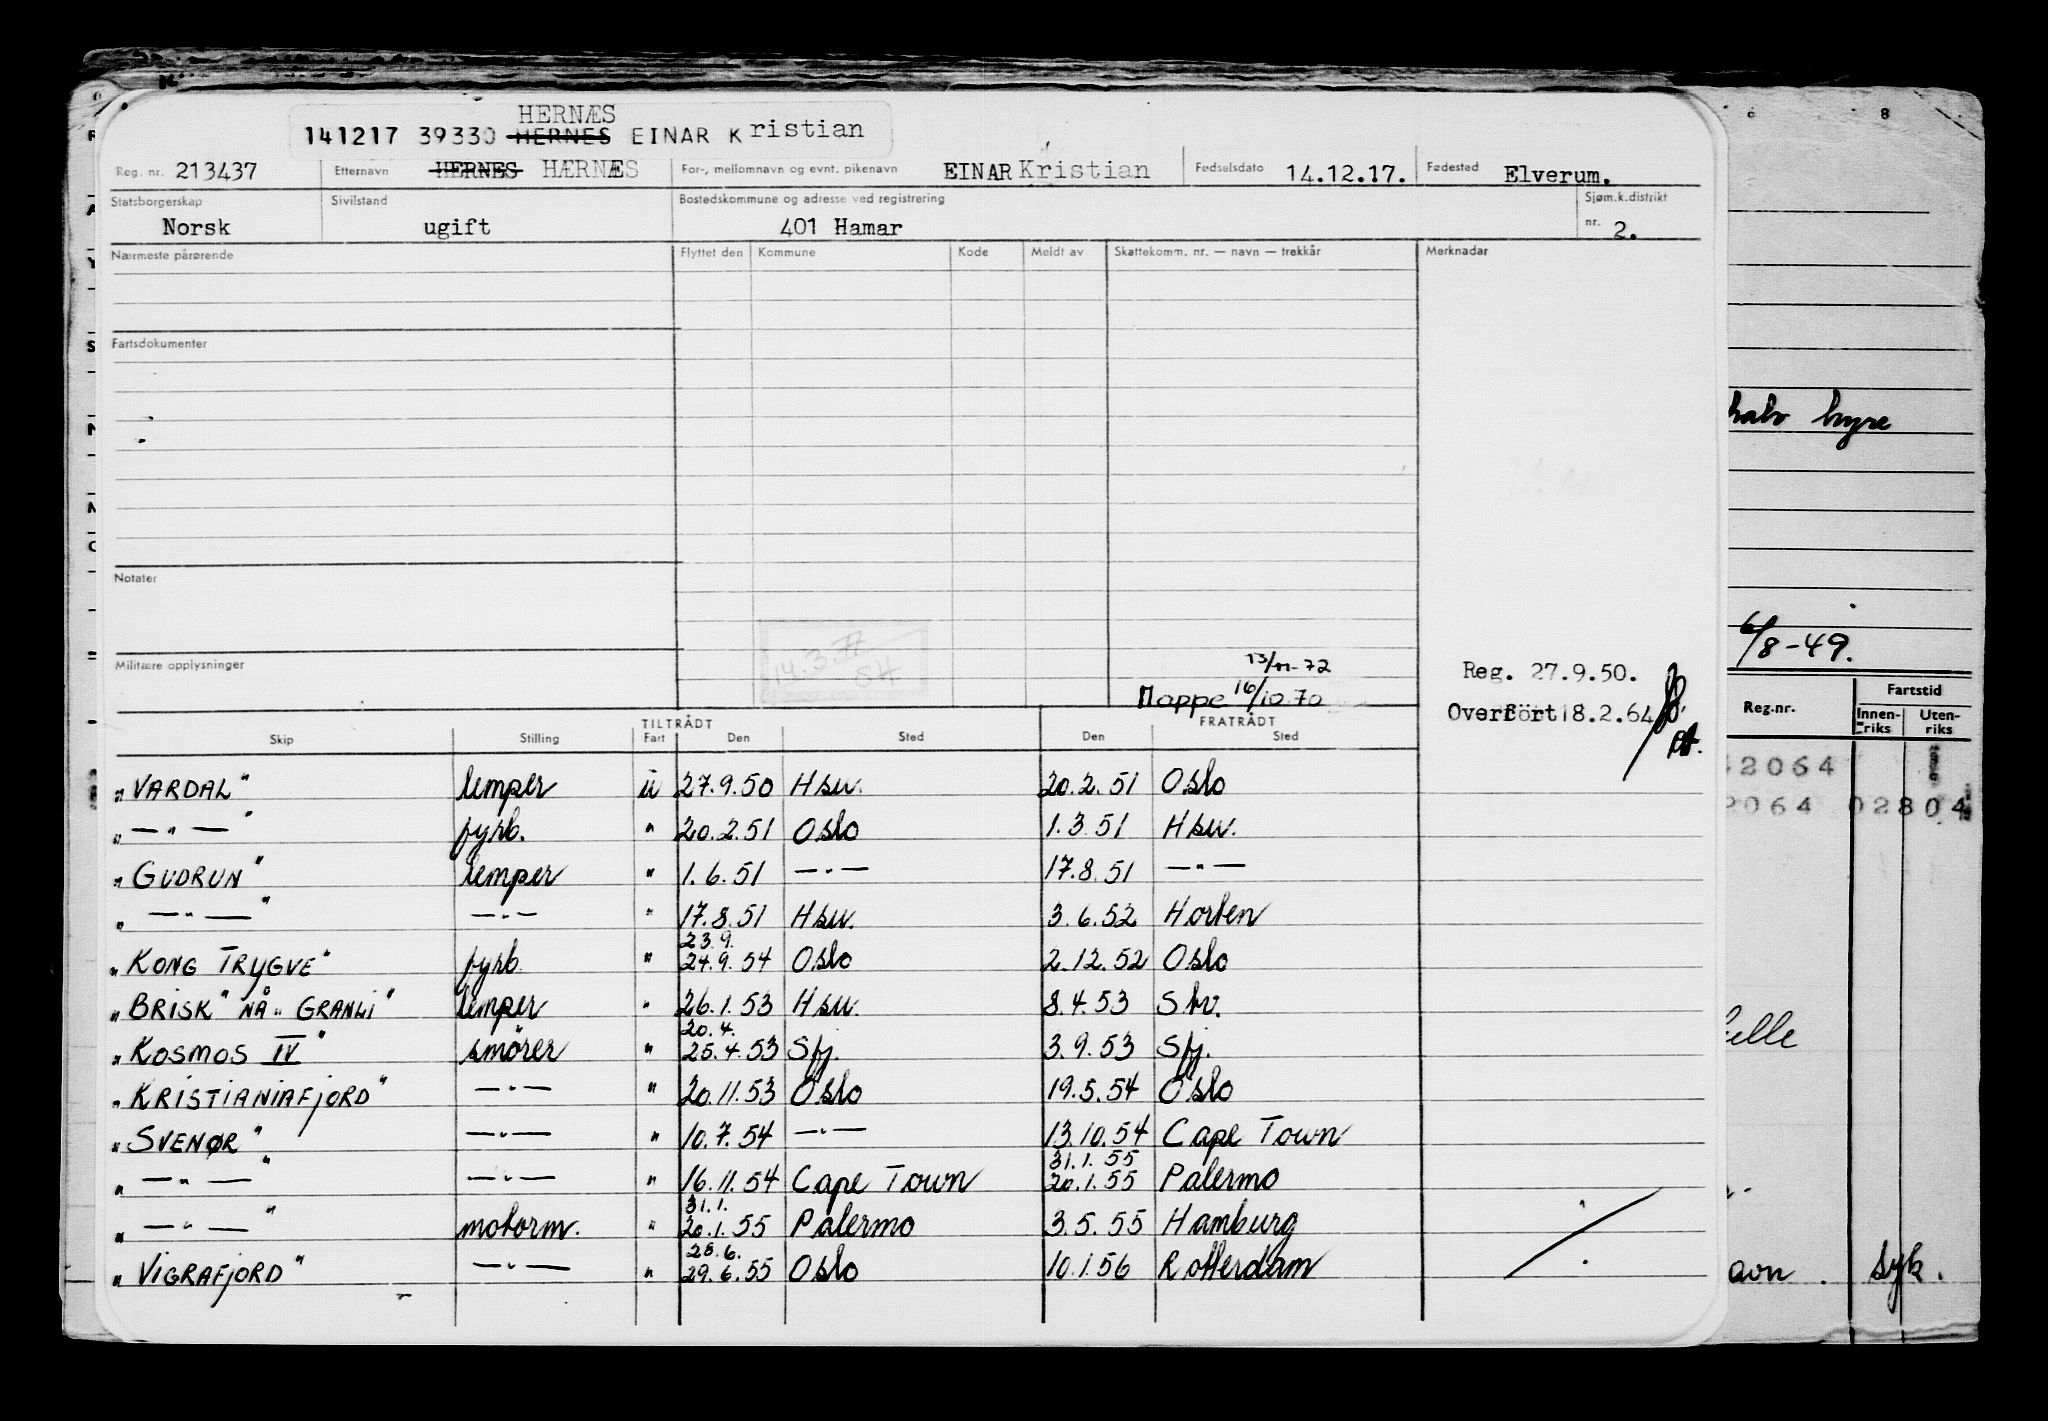 HERNÆS
141217 39330 HERNES EINAR Kristian
Reg. nr. 213437 Etternavn HERNES HÆRNÆS For-, mellomnavn og evnt. pikenavn EINAR Kristian Fødselsdato 14.12.17. Fødested Elverum.
Statsborgerskap Sivilstand Bostedskommune og adresse ved registrering Sjøm.k.distrikt
Norsk ugift 401 Hamar nr. 2.
Nærmeste pårørende Flyttet den Kommune Kode Meldt av Skattekomm. nr. — navn — trekkår Merknader
Fartsdokumenter
halv hyre
Notater
6/8-49.
14.3.77
SH
Militære opplysninger
13/11-72
Reg. 27.9.50.
Mappe 16/10.70
Overført 18.2.64
TILTRÅDT FRATRÅDT
Skip Stilling Fart Den Sted Den Sted
Reg.nr. Fartstid
Innen-riks Uten-riks
„VARDAL" lemper u 27.9.50 Hsu. 20.2.51 Oslo
„—"—" fyrb. " 20.2.51 Oslo 1.3.51 Hsu.
„GUDRUN" lemper " 1.6.51 —"— 17.8.51 —"—
„—"—" —"— " 17.8.51 Hsu. 3.6.52 Horten
23.9.
„KONG TRYGVE" fyrb. " 24.9.54 Oslo 2.12.52 Oslo
„BRISK" NÅ „GRANLI" lemper " 26.1.53 Hsu. 8.4.53 Sbv.
20.4.
„KOSMOS IV" smører " 25.4.53 Sfj. 3.9.53 Sfj.
„KRISTIANIAFJORD" —"— " 20.11.53 Oslo 19.5.54 Oslo
„SVENØR" —"— " 10.7.54 —"— 13.10.54 Cape Town
31.1.55
„—"—" —"— " 16.11.54 Cape Town 20.1.55 Palermo
31.1.
„—"—" motorm. " 20.1.55 Palermo 3.5.55 Hamburg
28.6.
„VIGRAFJORD" —"— " 29.6.55 Oslo 10.1.56 Rotterdam
2064
2064 02804
avn. syk.